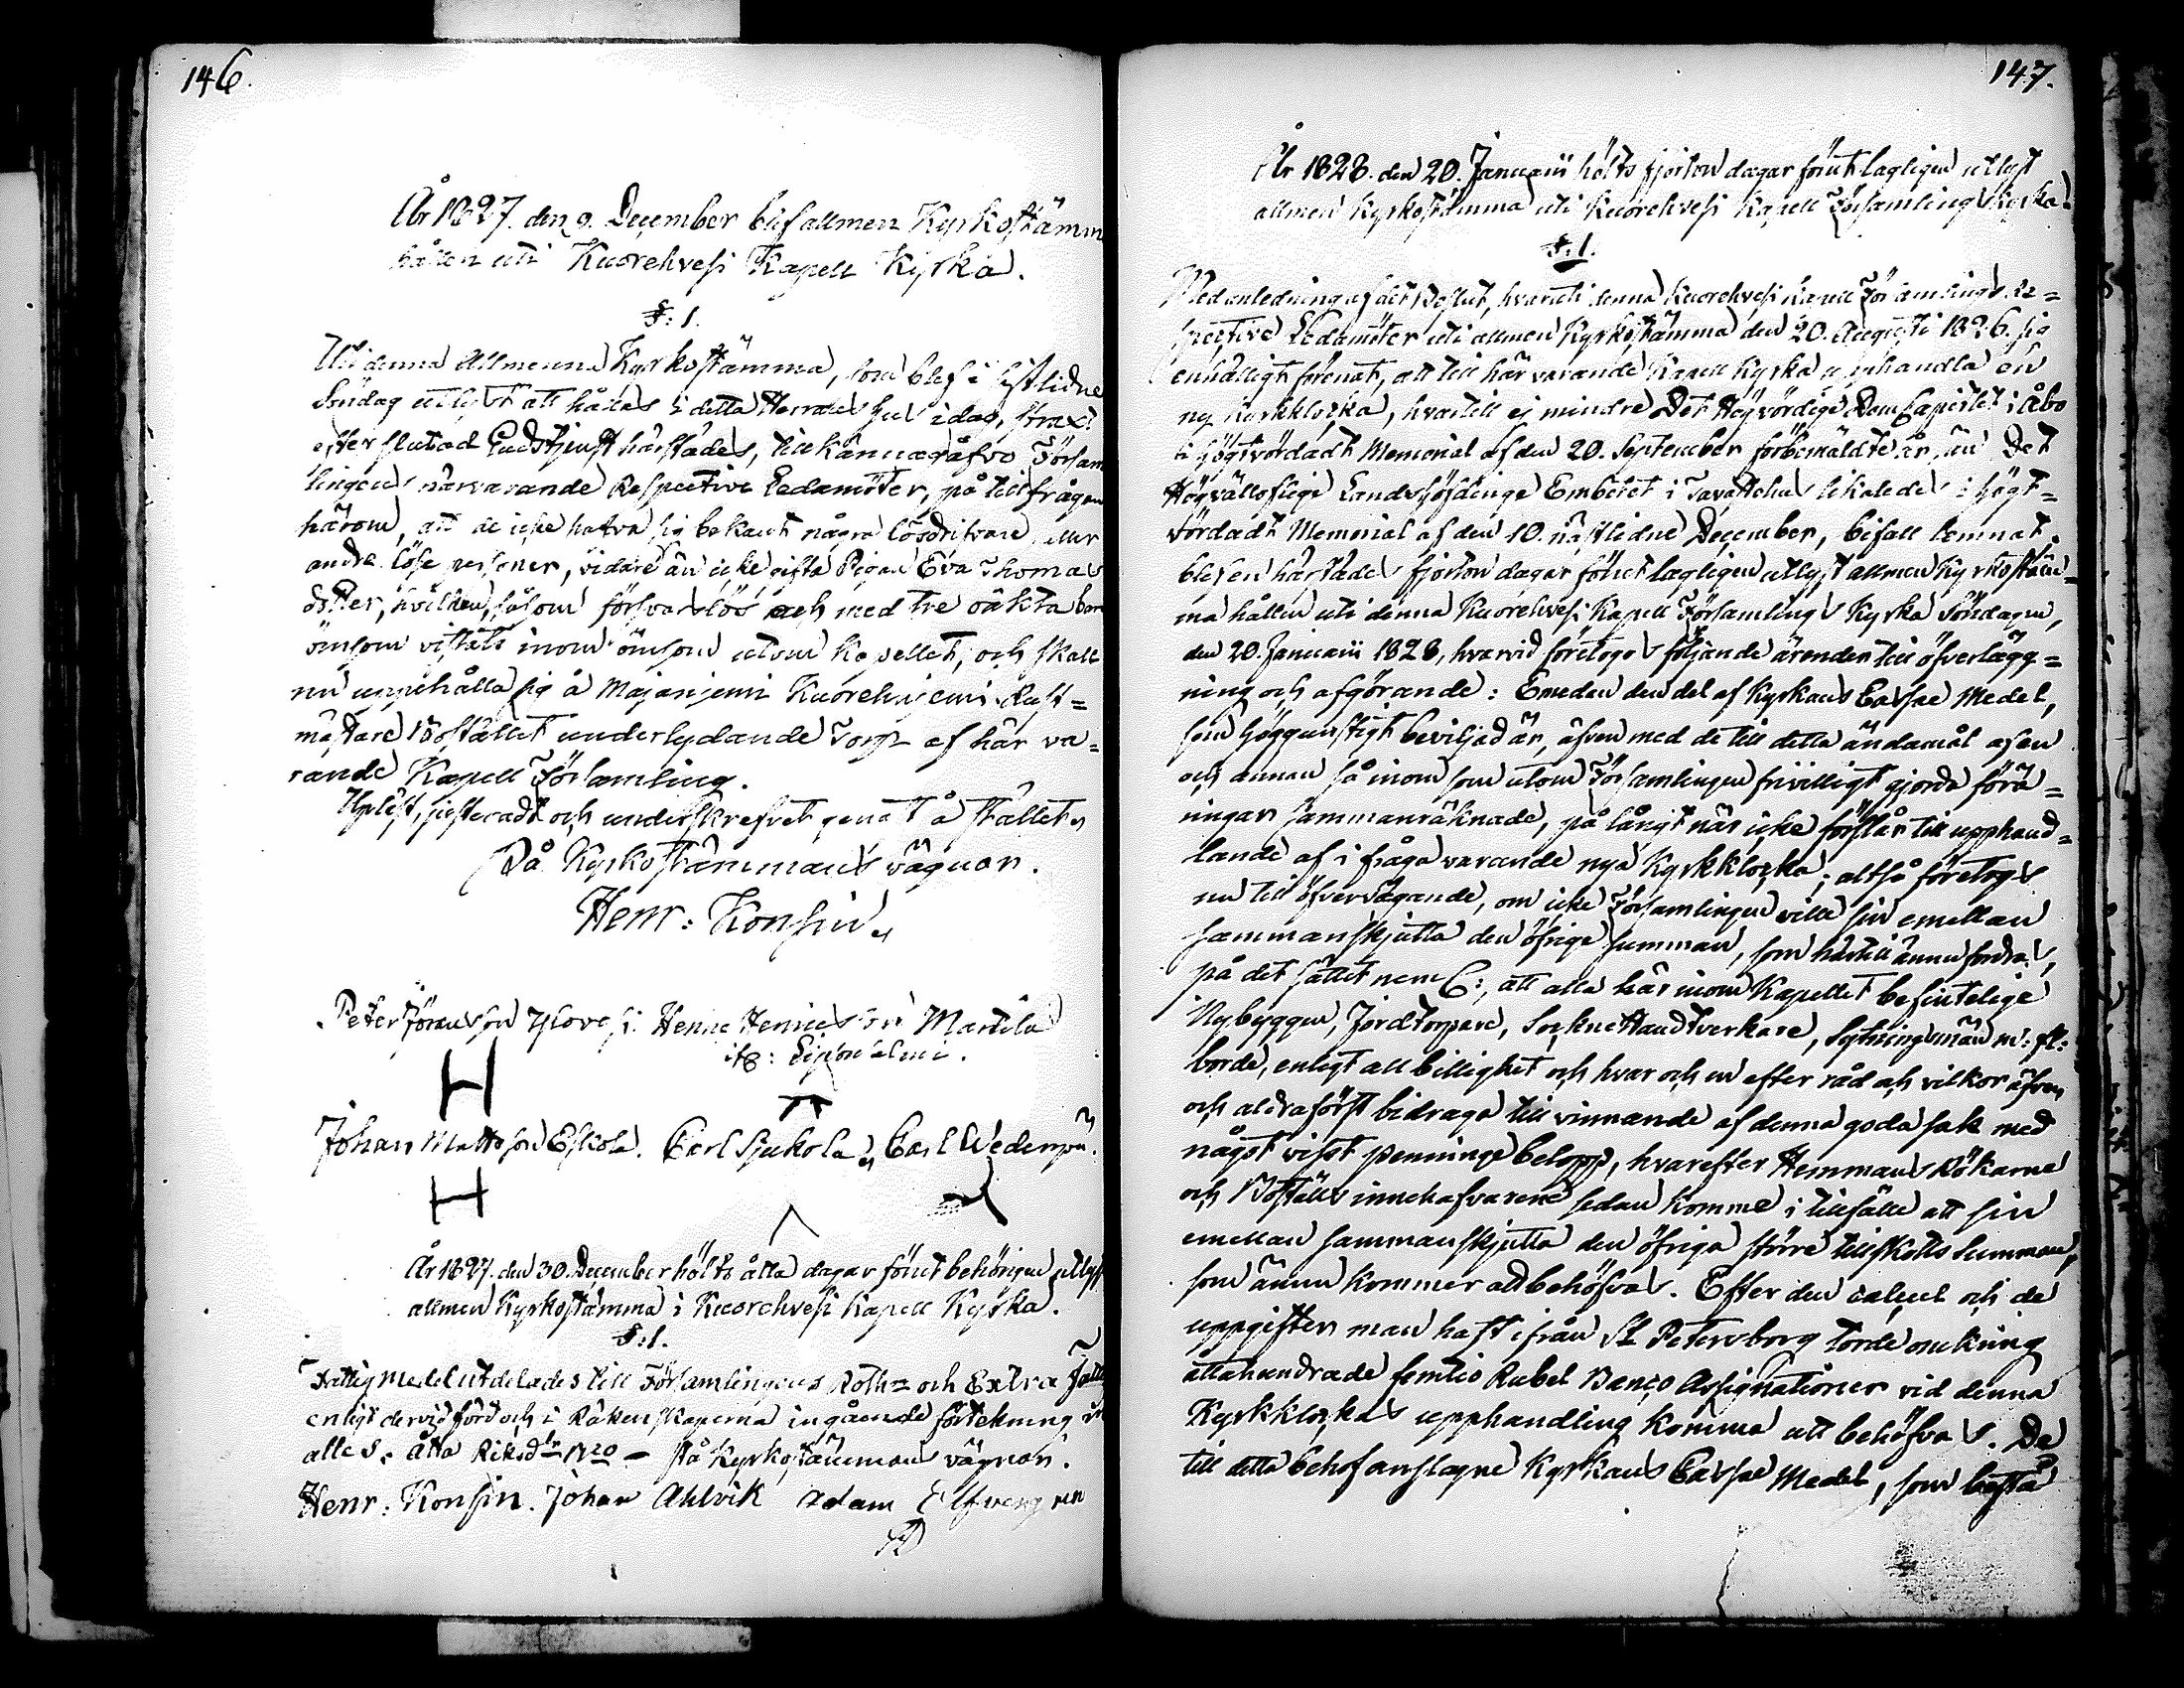 146.
År 1827. den 9. December blef allmen Kyrkostämm
hållen uti Kuorehvesi Kapell Kyrka.
§: 1.
Uti denna Allmenna Kyrkostämma, som blef sistlidne
Söndag utlyst att hållas i detta Herrans hus idag, strax
efter slutad Gudstjenst härstädes, tillkännagåfvo Försam
lingens närvarande Respective Ledamöter, på tillfrågan
härom, att de icke hafva sig bekant några lösdrifvare eller
andra löse personer, vidare än icke gifta Pigan Eva Thomas
dotter, hvilken, såsom försvarslös och med tre oäkta barn
ömsom vistats inom ömsom utom Kapellet, och skall
nu uppehålla sig å Majaniemi Kuorehniemi Rust=
mästare Bostället underlydande Torp af här va=
rande Kapell Församling.
Uplest, justeradt och underskrefvet genast å stället
På Kyrkostämmans vägnar.
Henr: Konsin
Peter Jöransson Henric Henricsson Martila
Johan Mattsson Eskola. Carl Sjukola, Carl Wedenpä.
År 1827. den 30. December hölts åtta dagar förut behörigen utlyst
allmen Kyrkostämma i Kuorehvesi Kapell Kyrka.
§: 1.
Fattig Medel utdelades till Församlingens Rothe och Extra Fatt
enligt dervid förd och i Räkenskaperna ingående förtekning
alles. åtta Riksd 20 – På Kyrkostämmans vägnar.
Henr: Konsin. Johan Ahlvik Adam Elfvengren
147.
År 1828. den 20. Januarii hölts fjorton dagar förut lagligen utlyst
allmen Kyrkostämma uti Kuorehvesi Kapell Församlings Kyrka.
§: 1.
Med anledning af det Beslut, hvaruti denna Kuorehvesi Kapell Församlings Re=
spective Ledamöter uti allmen Kyrkostämma den 20. Augusti 1826. sig
enhälligt förenat, att till härvarande Kapell Kyrka upphandla en
ny Kyrkklocka, hvartill ej mindre Det Högvördige DomCapitlet i Åbo
i högtvördadt Memorial af den 20. September förbemäldte år, än Det
Högvälloflige Landshöfdinge Embetet i Tavastehus likaledes i högt=
vördadt Memorial af den 10. nästlidne December, bifall lemnat,
blef en härstädes fjorton dagar förut lagligen utlyst allmen Kyrkostäm=
ma hållen uti denna Kuorehvesi Kapell Församlings Kyrka Söndagen,
den 20. Januarii 1828, hvarvid företogs följande ärenden till öfverlägg=
ning och afgörande: Emedan den del af Kyrkans Cassae Medel,
som höggunstigt beviljad är, äfven med de till detta ändamål af en
och annan så inom som utom Församlingen frivilligt gjorda förä=
ningar sammanräknade, på långt när icke förslår till upphand=
lande af i fråga varande nya Kyrkklocka; altså företogs
nu till öfvervägande, om icke Församlingen ville sin emellan
sammanskjutta den öfrige summan, som härtill ännu fordras,
på det sättet neml:, att alla här inom Kapellet befintelige
Nybyggen, Jordtorpare, Sockne Handtverkare, Sytningsmän m: fl:
borde, enligt all billighet och hvar och en efter råd och vilkor äfven
och aldraförst bidraga till vinnande af denna goda sak med
något visst penninge belopp, hvarefter Hemmans Rökarne
och Boställs innehafvarene sedan komme i tillfälle att sin
emellan sammanskjutta den öfriga större tillskotts summan,
som ännu kommer att behöfvas. Efter den calcul och de
uppgifter man haft ifrån St Petersborg torde omkring
åttahundrade femtio Rubel Banco Assignationer vid denna
Kyrkklockas upphandling komma att behöfvas. De
till detta behof anslagne Kyrkans Cassae Medel, som bestå